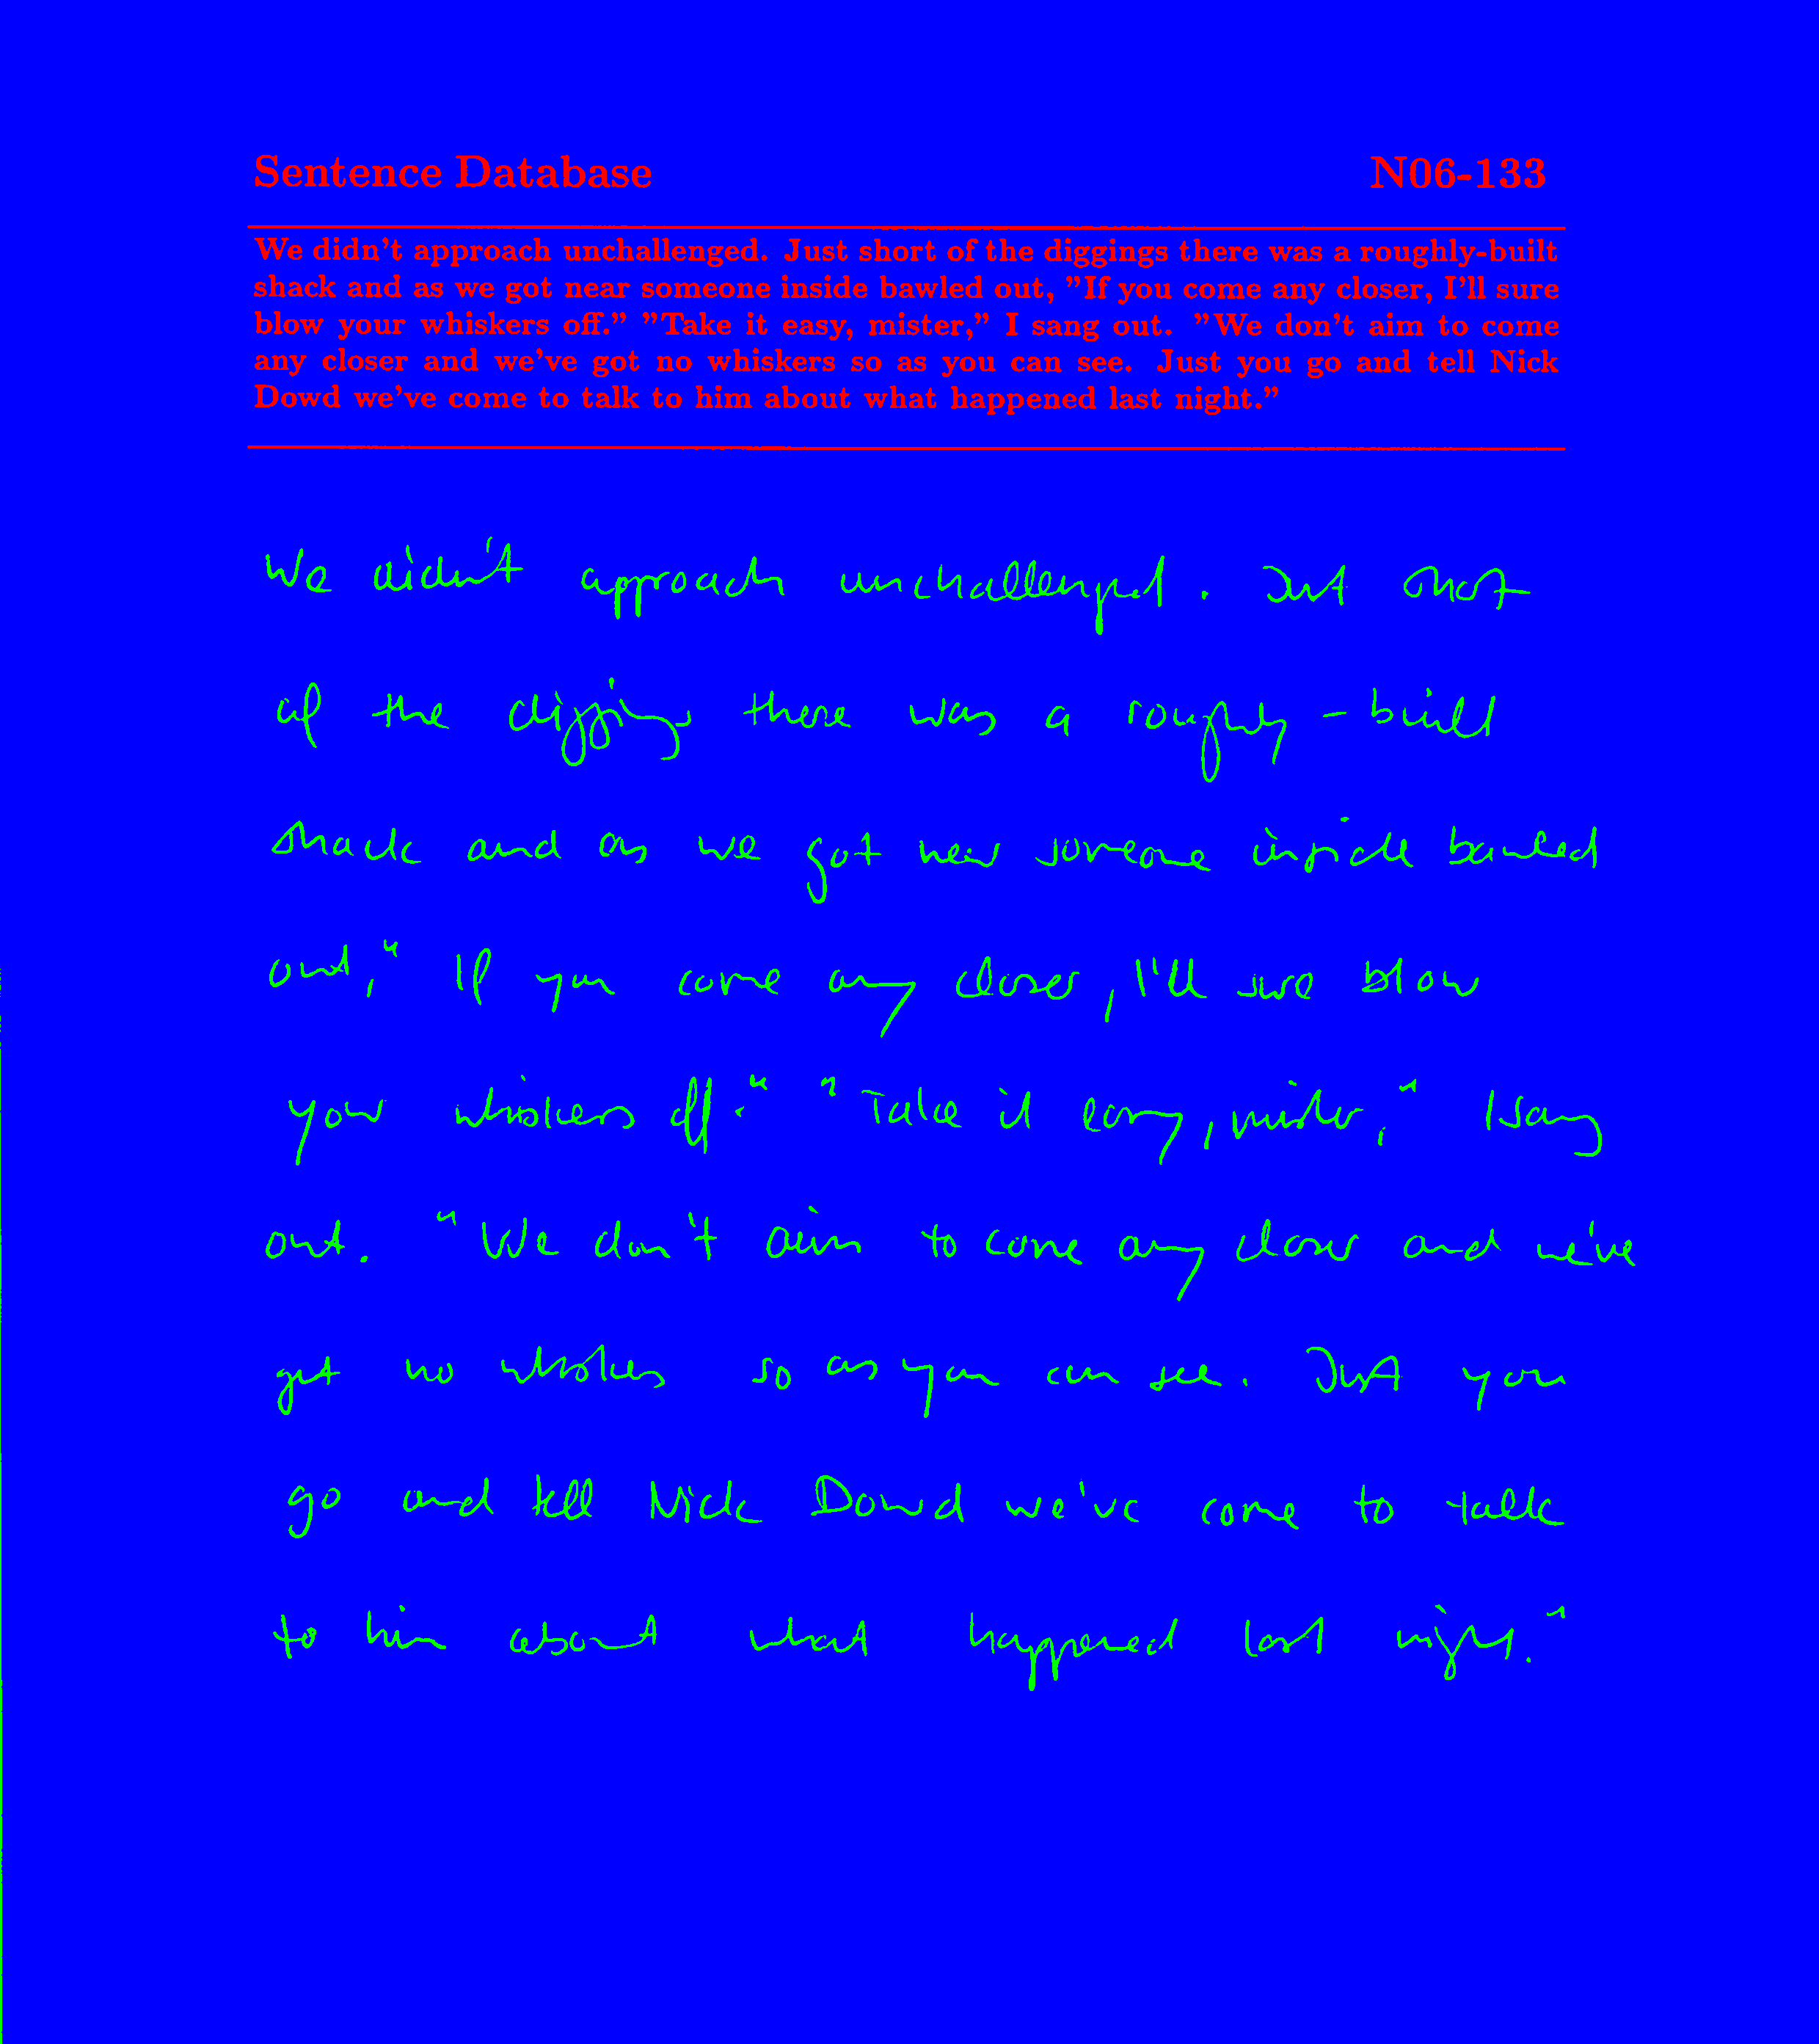 Sentence Database N06-133
We didn't approach unchallenged. Just short of the diggings there was a roughly-built
shack and as we got near someone inside bawled out, "If you come any closer, I'll sure
blow your whiskers off." "Take it easy, mister," I sang out. "We don't aim to come
any closer and we've got no whiskers so as you can see. Just you go and tell Nick
Dowd we've come to talk to him about what happened last night."
We didn't approach unchallenged. Just short
of the diggings there was a roughly-built
shack and as we got near someone inside bawled
out," If you come any closer, I'll sure blow
your whiskers off." "Take it easy, mister," I sang
out. "We don't aim to come any closer and we've
got no whiskers so as you can see. Just you
go and tell Nick Dowd we've come to talk
to him about what happened last night."